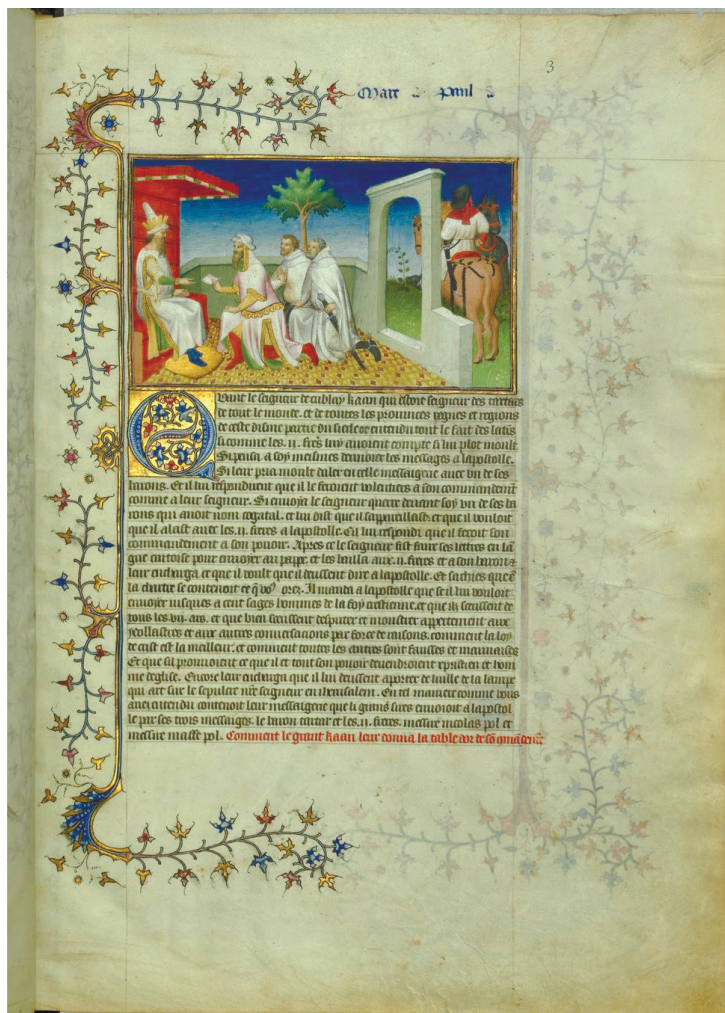 3
Marc Paul
Quant le seigneur de cublay kaan qui estoit seigneur des tartars
de tout le monde. et de toutes les prouinces regnes et regions
de ceste disme partie du siecle ot entendu tout le fait des latins
si comme les .ij. freres luy auoient compte si lui plot moult.
Si pensa a soy meismes denuoier les messages a lapostolle.
Si leur pria moult daler en celle messaigerie auec vn de ses
barons. Et il lui respondirent que il le feroient volentiers a son commandement
comme a leur seigneur. Si enuoya le seigneur querre deuant soy vn de ses ba
rons qui auoit nom cogatal. et lui dist que il sappareillast. et que il vouloit
que il alast auec les .ij. freres a lapostolle. Cil lui respondi que il feroit son
commandement a son pouoir. Apres ce le seigneur fist faire ses lettres en lan
gue tartoise pour enuoyer au pappe. et les bailla aux .ij. freres et a son baron et
leur encharga ce que il voult que il deussent dire a lapostolle. Et sachies que en
la chartre se contenoit ce que vous orez. Il manda a lapostolle que se il lui vouloit
enuoyer iusques a cent sages hommes de la foy crestienne. et que ilz sceussent de
tous les vij. ars. et que bien sceussent desputer et monstrer appertement aux
ydollastres et aux autres conuersacions par force de raisons. comment la loy
de crist est la meilleur. et comment toutes les autres sont fausses et mauuaises
Et que sil prouuoient ce que il et tout son pouoir deuendroient crestien et hom
me deglise. Encore leur encharga que il lui deussent aporter de luille de la lampe
qui art sur le sepulcre nostre seigneur en iherusalem. En tel maniere comme vous
auez entendu contenoit leur messaigerie que li grans sires enuoioit a lapostol
le par ses trois messaiges. le baron tartar et les .ij. freres. messire nicolas pol et
messire maffe pol. Comment le grant kaan leur donna la table dor de son commandement